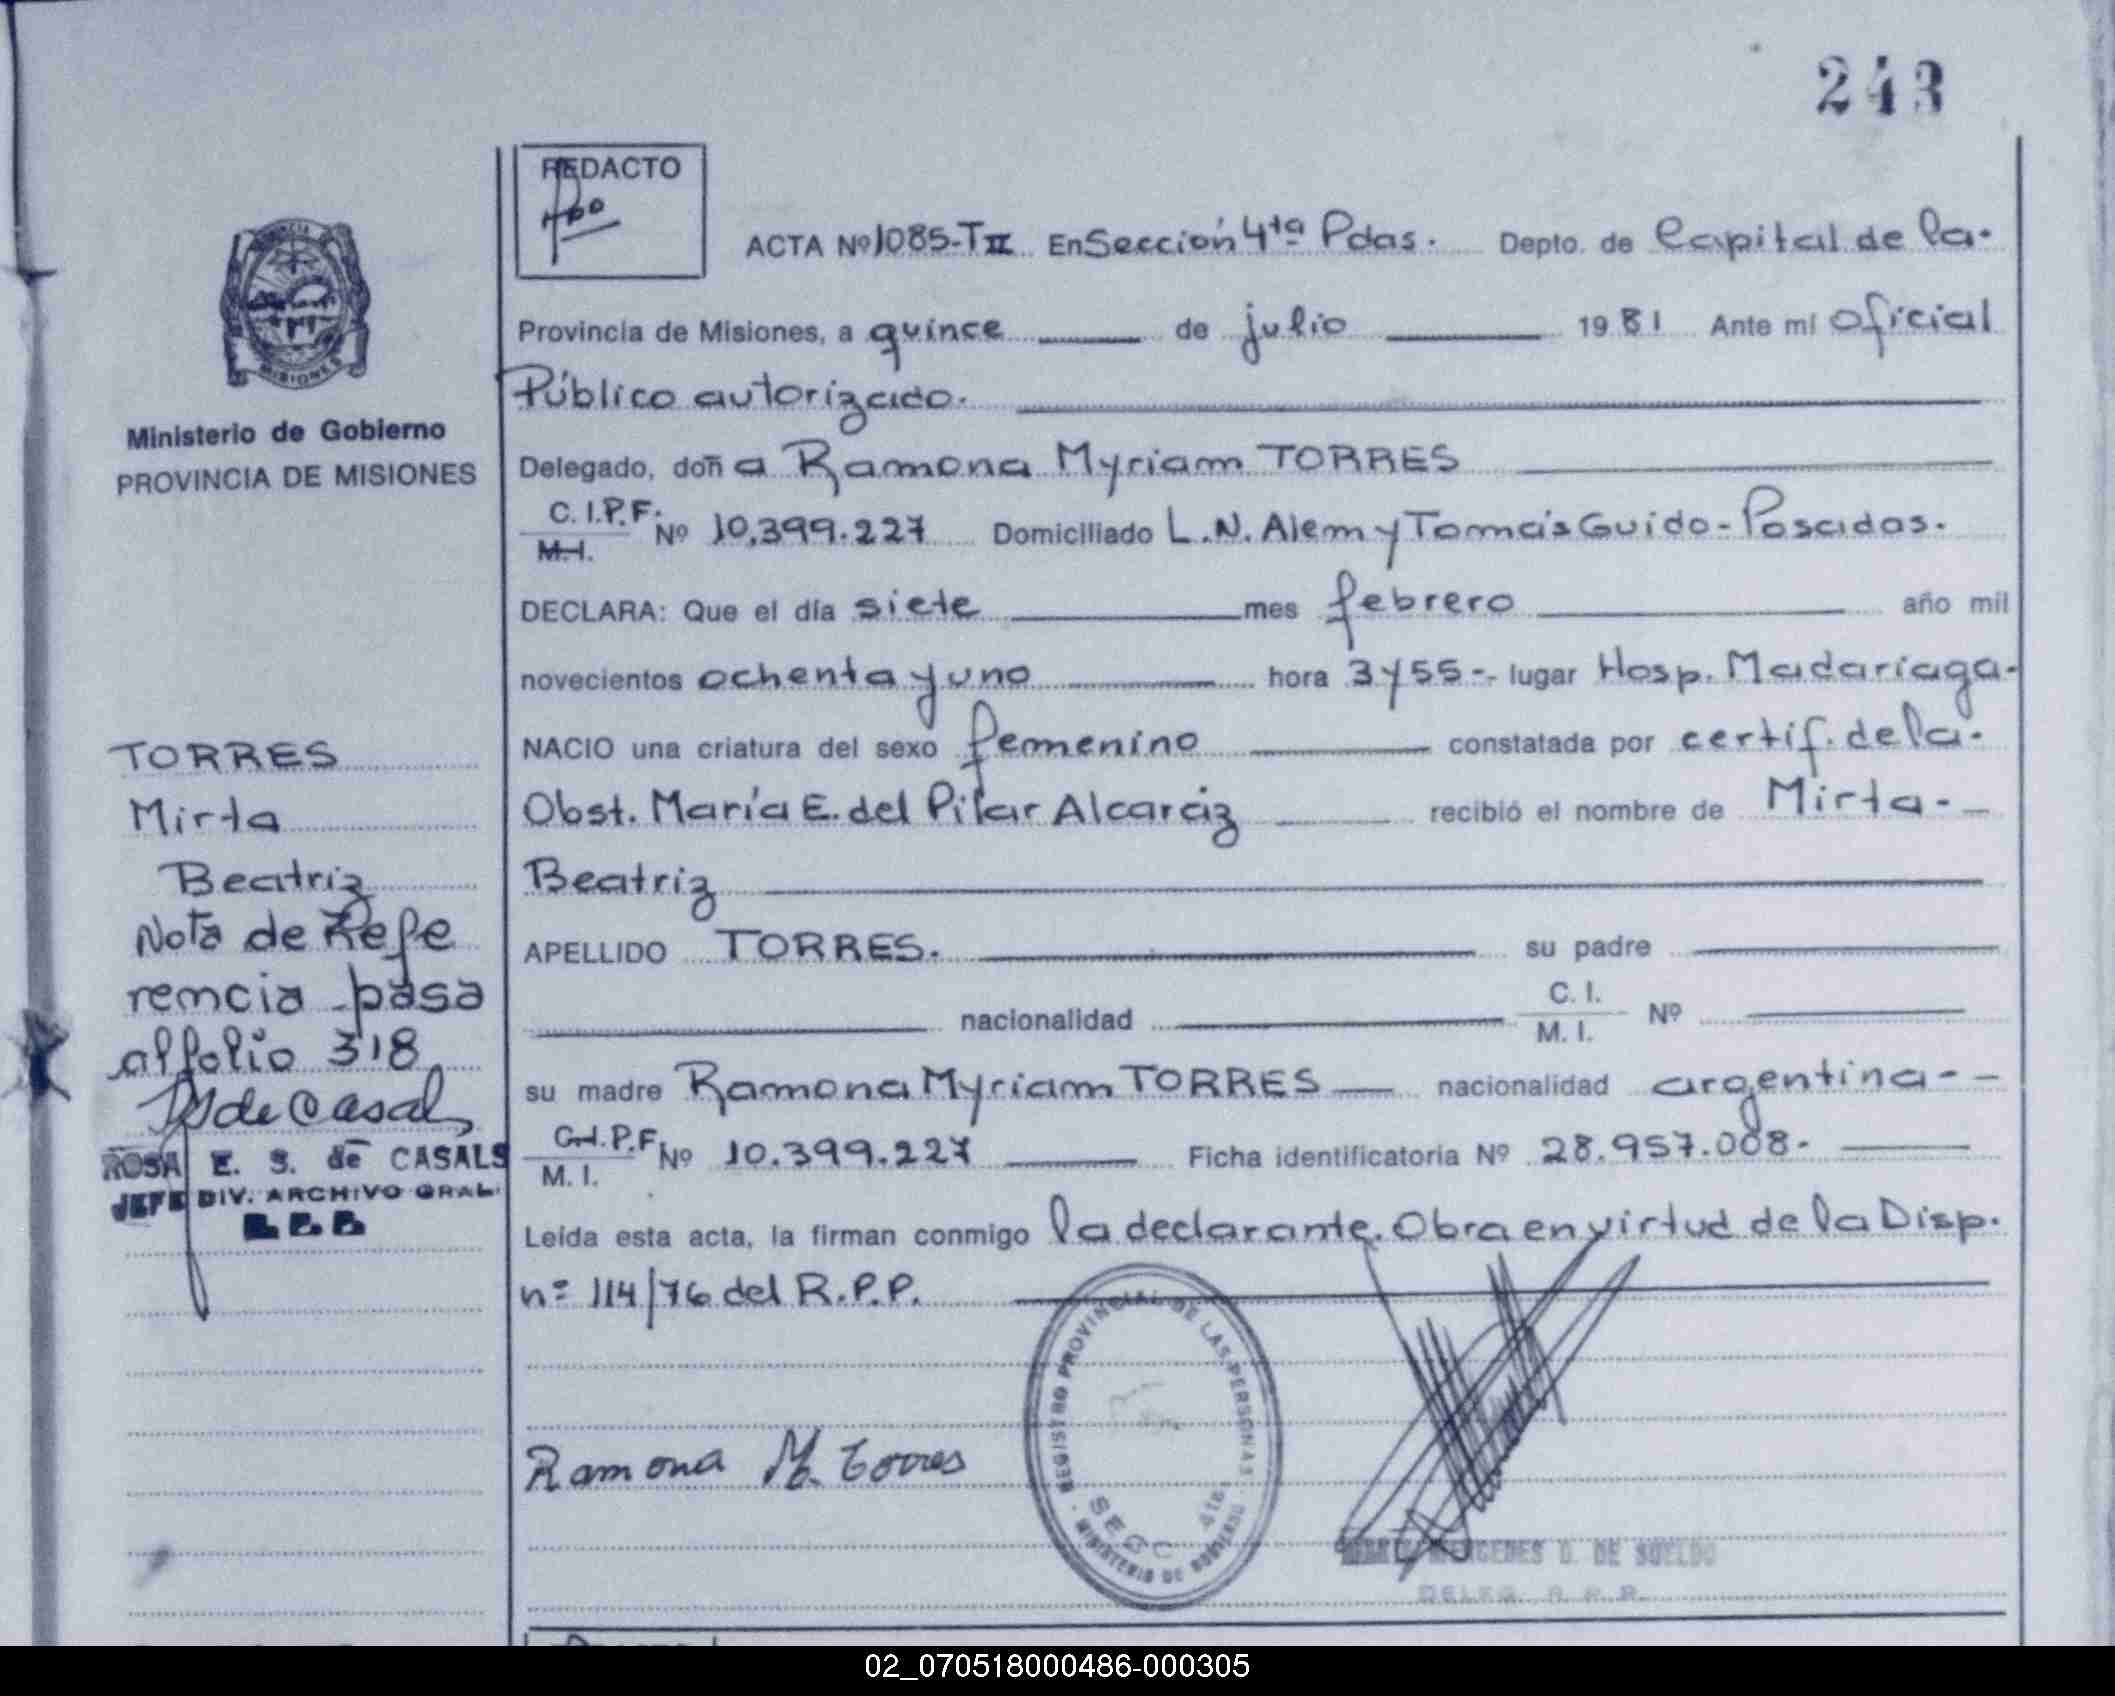 243
REDACTO
ACTA Nº 1085-TII En Sección 4ta Pdas. Depto. de Capital de la.
Provincia de Misiones, a quince de julio 1981 Ante mí oficial
Público autorizado.
Delegado, doña Ramona Myriam TORRES
C.I.P.F. M.I. Nº 10.399.227 Domiciliado L.N. Alem y Tomás Guido - Posadas.
DECLARA: Que el día siete mes febrero año mil
novecientos ochenta y uno hora 3 y 55 -. lugar Hosp. Madariaga.
NACIO una criatura del sexo femenino constatada por certif. de la.
Obst. María E. del Pilar Alcaráz recibió el nombre de Mirta -
Beatriz
APELLIDO TORRES. su padre
nacionalidad C. I. M. I. Nº
su madre Ramona Myriam TORRES nacionalidad argentina - -
C.I.P.F. M. I. Nº 10.399.227 Ficha identificatoria Nº 28.957.008.
Leída esta acta, la firman conmigo la declarante. Obra en virtud de la Disp.
nº 114/76 del R.P.P.
Ramona M. Torres
REGISTRO PROVINCIAL DE LAS PERSONAS
MINISTERIO DE GOBIERNO
SECC 4ta
MERCEDES D. DE SUELDO
DELEG. R. P. P.
MISIONES
Ministerio de Gobierno
PROVINCIA DE MISIONES
TORRES
Mirta
Beatriz
Nota de Refe
rencia pasa
al folio 318
de Casals
ROSA E. S. de CASALS
JEFE DIV. ARCHIVO GRAL.
02_070518000486-000305